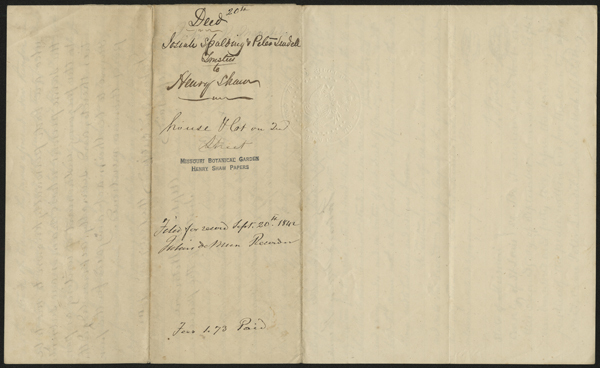 Deed 20th
Josiah Spalding & Peter Lindell
Trustees
to
Henry Shaw
house & Lot on 2nd
Street
MISSOURI BOTANICAL GARDEN
HENRY SHAW PAPERS
Filed for record Sept. 20th 184
Julius de Mun Recorder
Fees 1.73 Paid